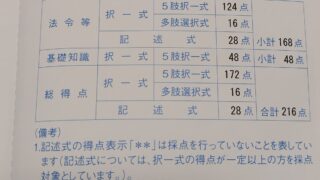 択一式 5肢択一式 124点
法令等 多肢選択式 16点
記述式 28点 小計 168点
基礎知識 択一式 5肢択一式 48点 小計 48点
択一式 5肢択一式 172点
総得点 多肢選択式 16点
記述式 28点 合計 216点
(備考)
1.記述式の得点表示「**」は採点を行っていないことを表してい
ます(記述式については、択一式の得点が一定以上の方を採点
対象としています。)。